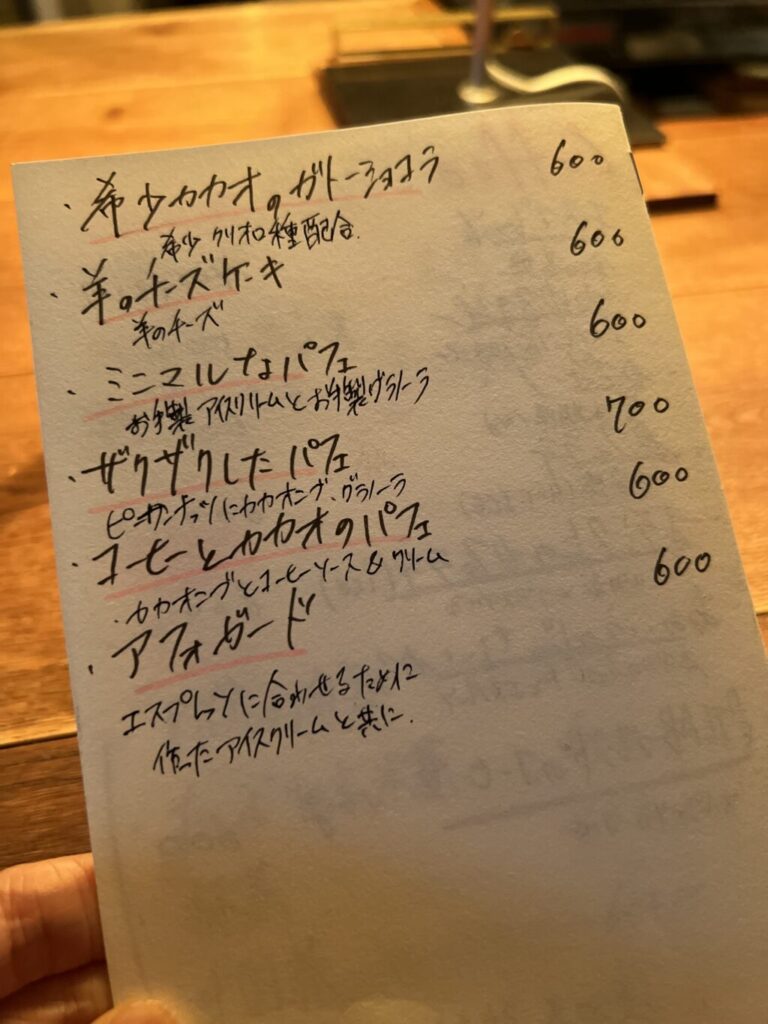 ・希少カカオのガトーショコラ 600
希少クリオロ種配合
・羊のチーズケーキ 600
羊のチーズ
・ミニマルなパフェ 600
お手製アイスクリームとお手製グラノーラ
・ザクザクしたパフェ 700
にカカオニブ、グラノーラ
・コーヒーとカカオのパフェ 600
・カカオニブとコーヒーソース&クリーム
・アフォガード 600
エスプレッソに合わせるために
作ったアイスクリームと共に.